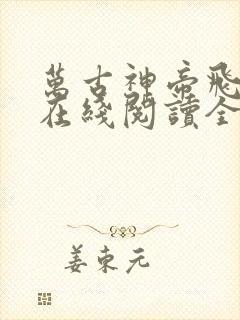 萬古神帝飛
在綫閱讀全
姜東元